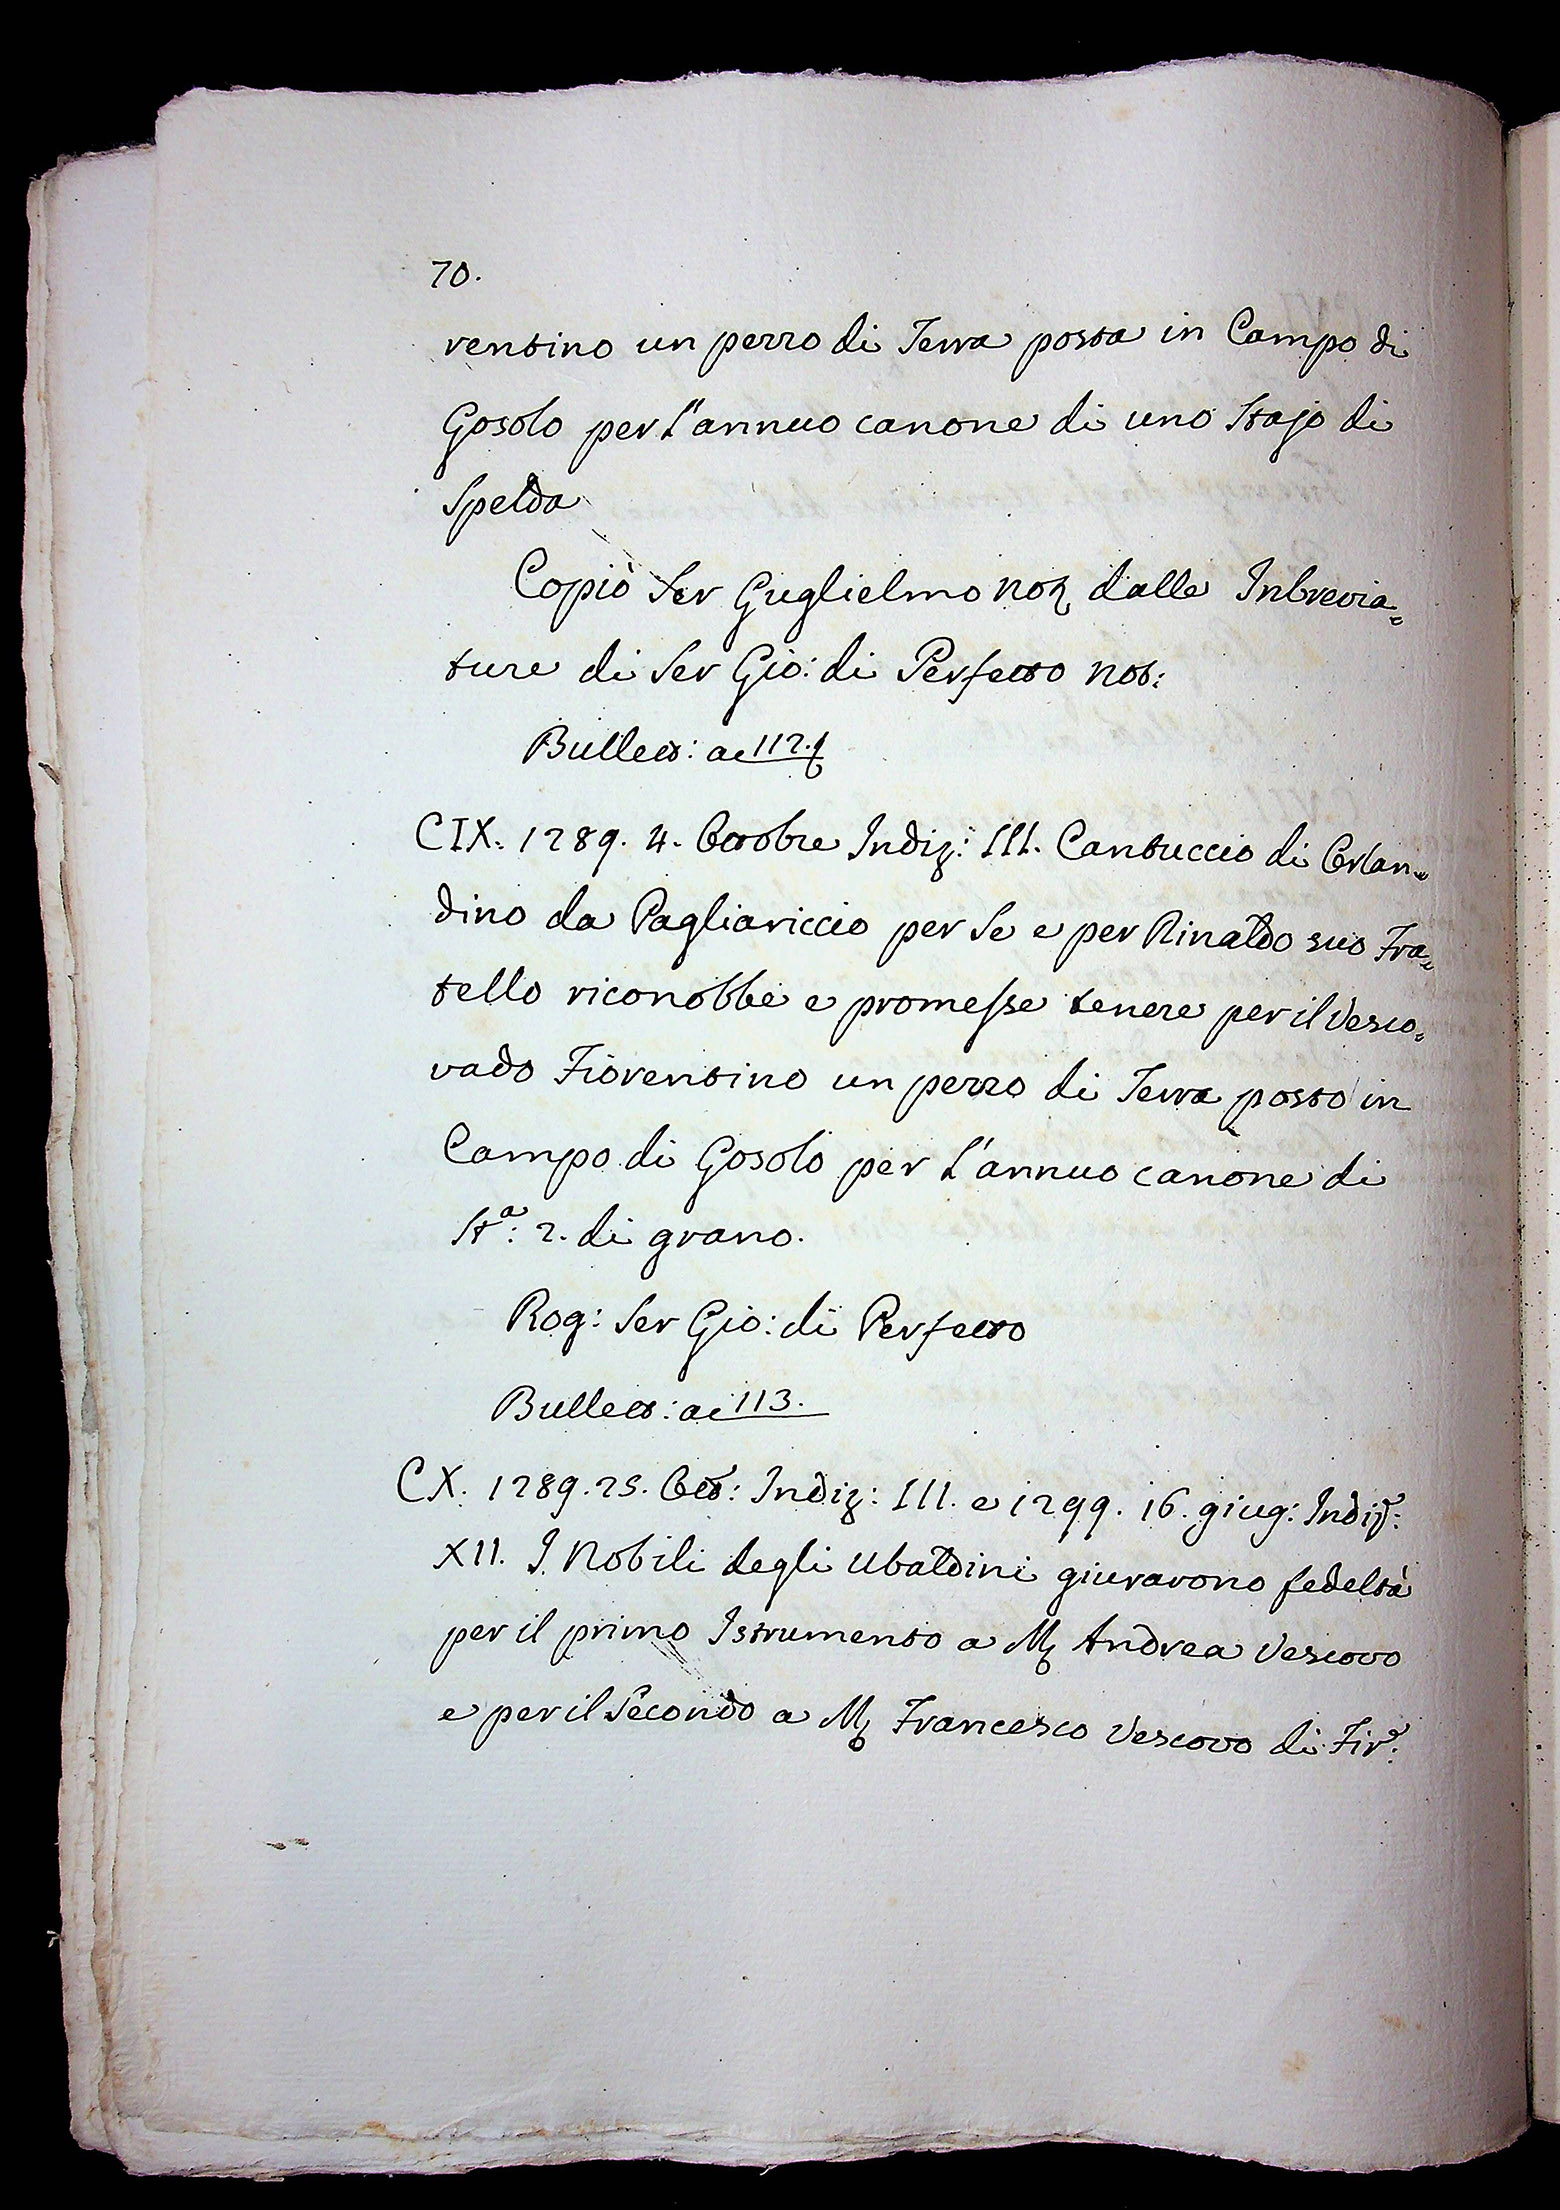 70.
rentino un pezzo di Terra posta in Campo di
Gosolo per l'annuo canone di uno Stajo di
Spelda
Copiò Ser Guglielmo Not dalle Inbrevia=
ture di Ser Gio: di Perfetto Not:
Bullett: ac 112.t
CIX. 1289. 4. Ottobre Indiz: III. Cantuccio di Orlan=
dino da Pagliariccio per Se e per Rinaldo suo Fra=
tello riconobbe e promesse tenere per il Vesco=
vado Fiorentino un pezzo di Terra posto in
Campo di Gosolo per l'annuo canone di
Sta: 2. di grano.
Rog: Ser Gio: di Perfetto
Bullett: ac 113.
CX. 1289. 25. Ott: Indiz: III. e 1299. 16. giug: Indiz:
XII. I Nobili degli Ubaldini giurarono fedeltà
per il primo Istrumento a M Andrea Vescovo
e per il Secondo a M Francesco Vescovo di Fir: